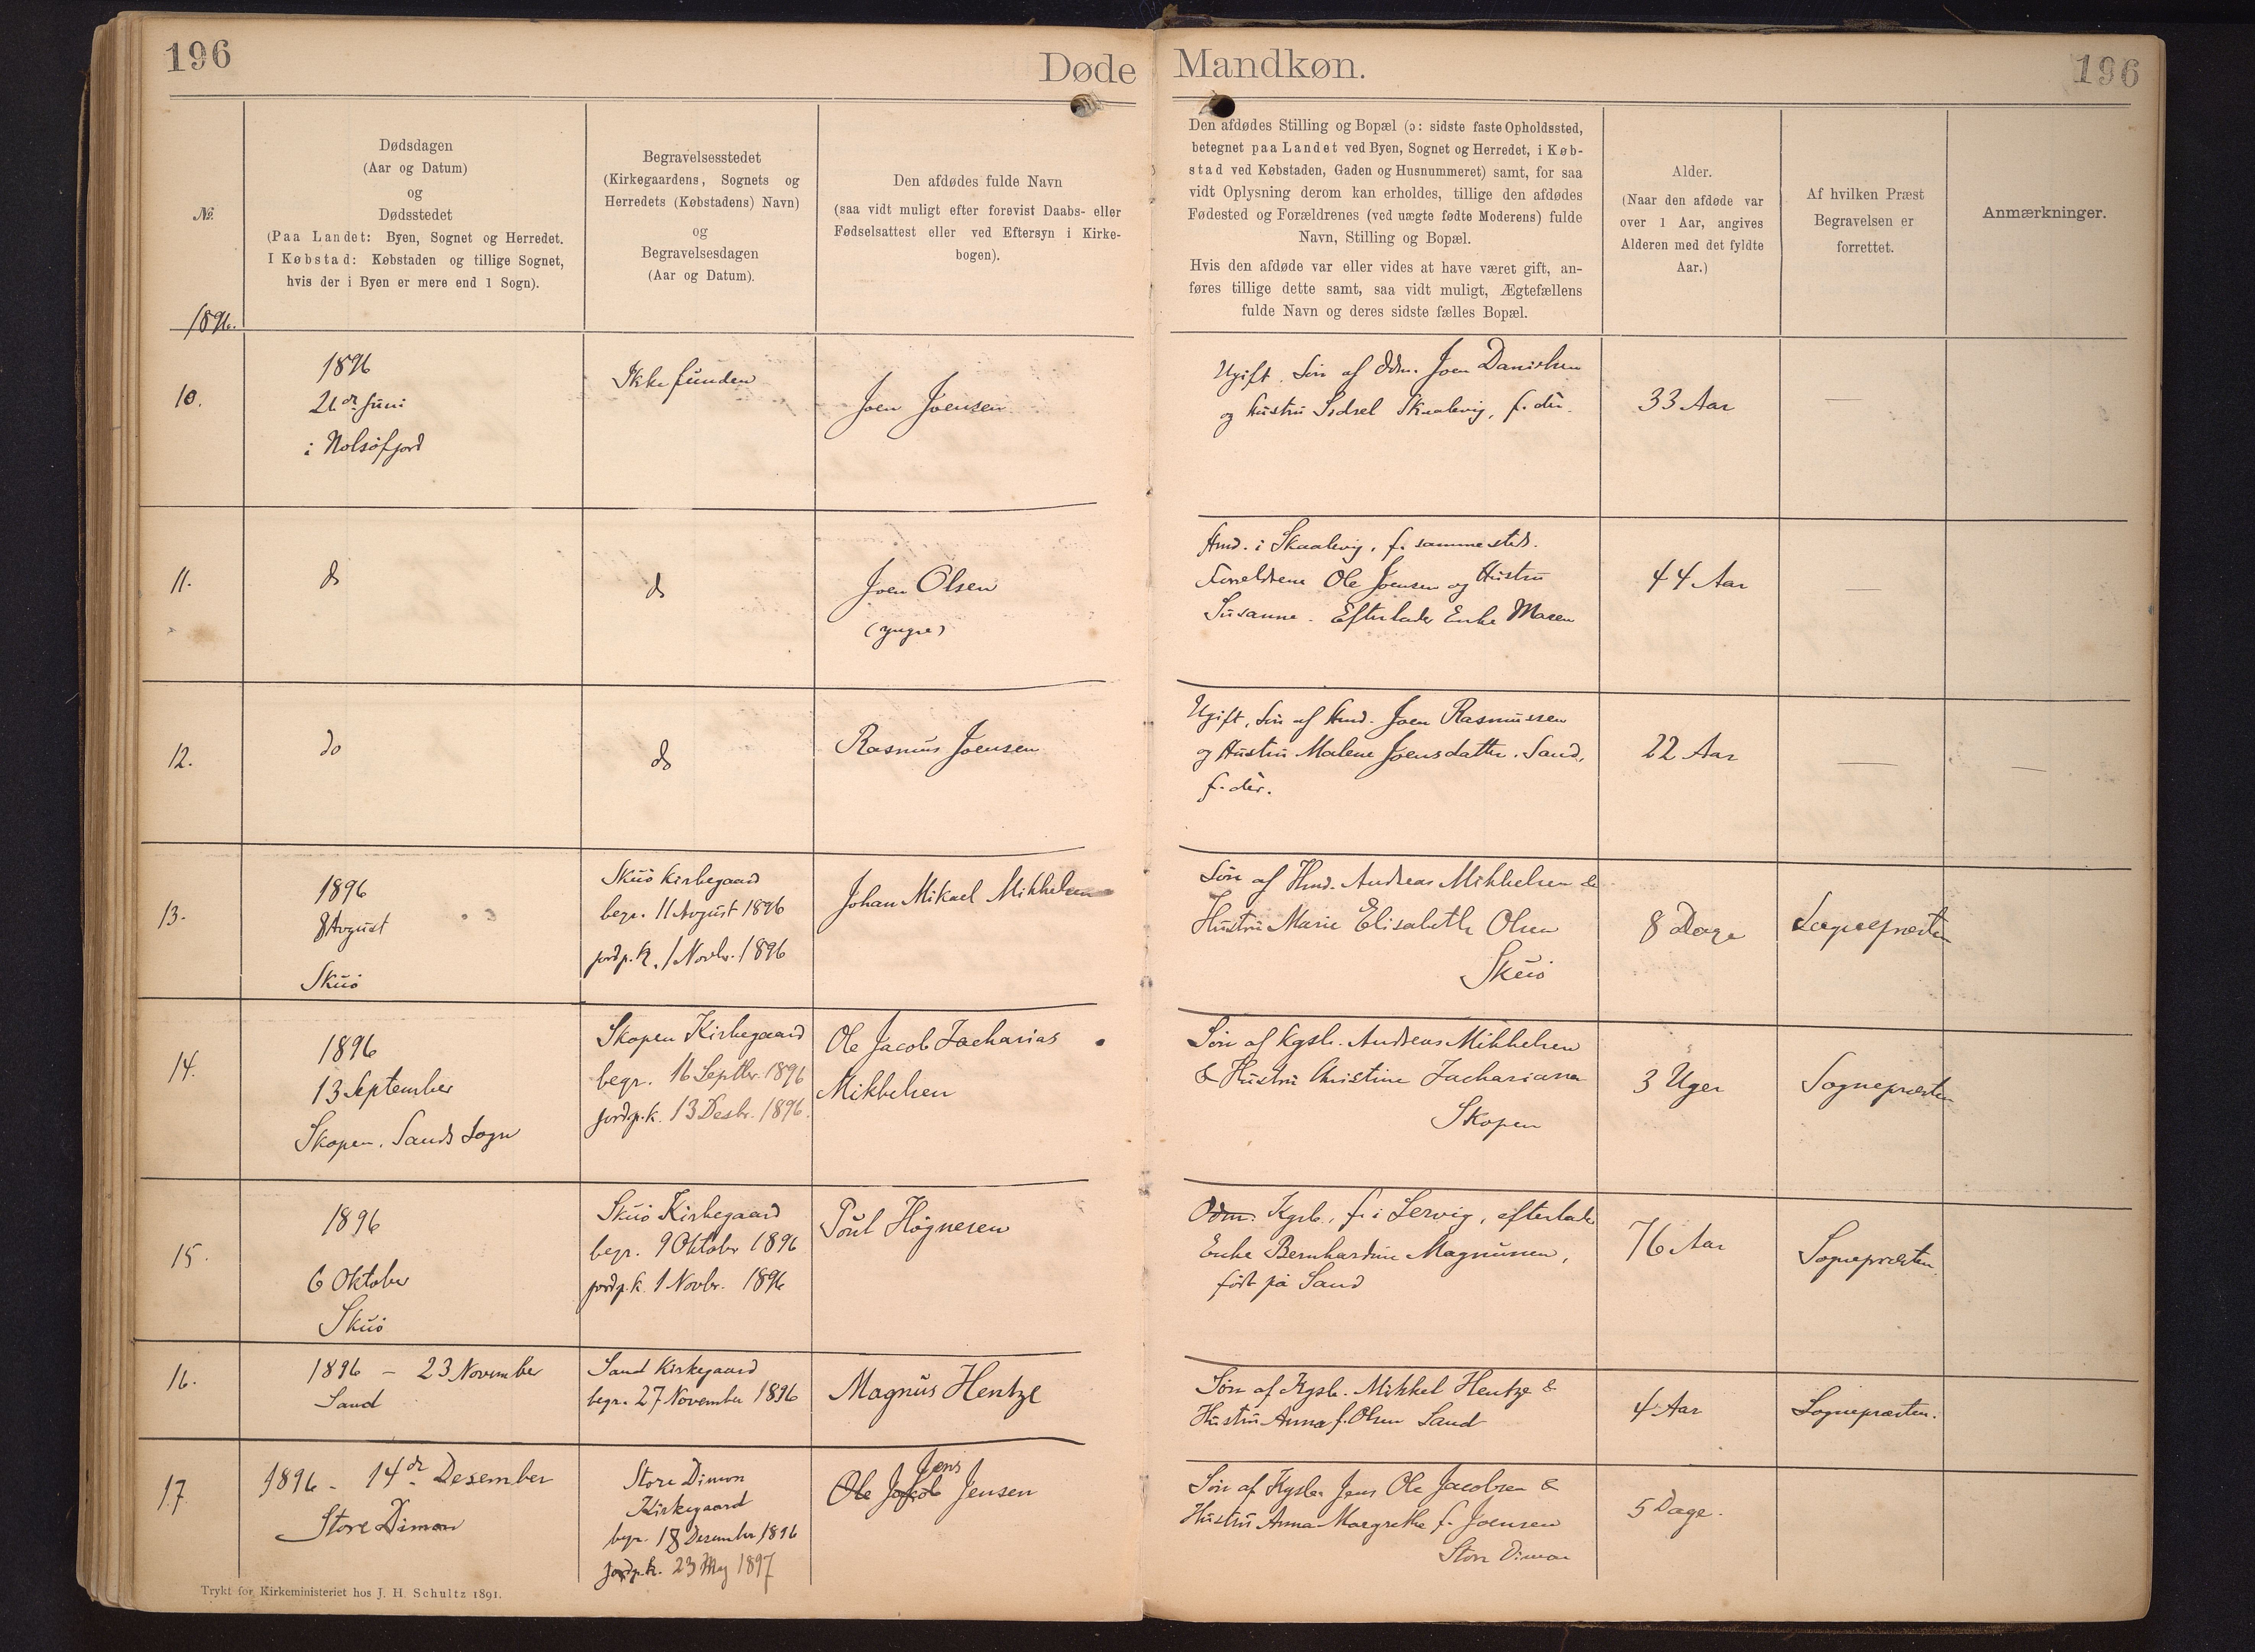 196
Døde
Mandkøn.
196
№
1896.
Dødsdagen
(Aar og Datum)
og
Dødsstedet
(Paa Landet: Byen, Sognet og Herredet.
I Købstad: Købstaden og tillige Sognet,
hvis der i Byen er mere end 1 Sogn).
Begravelsesstedet
(Kirkegaardens, Sognets og
Herredets (Købstadens) Navn)
og
Begravelsesdagen
(Aar og Datum).
Den afdødes fulde Navn
(saa vidt muligt efter forevist Daabs- eller
Fødselsattest eller ved Eftersyn i Kirke-
bogen).
Den afdødes Stilling og Bopæl (ɔ: sidste faste Opholdssted,
betegnet paa Landet ved Byen, Sognet og Herredet, i Køb-
stad ved Købstaden, Gaden og Husnummeret) samt, for saa
vidt Oplysning derom kan erholdes, tillige den afdødes
Fødested og Forældrenes (ved uægte fødte Moderens) fulde
Navn, Stilling og Bopæl.
Hvis den afdøde var eller vides at have været gift, an-
føres tillige dette samt, saa vidt muligt, Ægtefællens
fulde Navn og deres sidste fælles Bopæl.
Alder.
(Naar den afdøde var
over 1 Aar, angives
Alderen med det fyldte
Aar.)
Af hvilken Præst
Begravelsen er
forrettet.
Anmærkninger.
10.
1896
26de Juni
i Nolsöfjord
Ikke funden
Joen Joensen
Ugift. Sön af Odm. Joen Danielsen
og Hustru Sidsel Skaalevig, f. dèr.
33 Aar
—
11.
do
do
Joen Olsen
(yngre)
Hmd. i Skaalevig, f. sammesteds.
Forældrene Ole Joensen og Hustru
Susanne. Efterlader Enke Maren
44 Aar
—
12.
do
do
Rasmus Joensen
Ugift, Sön af Hmd. Joen Rasmussen
og Hustru Malene Joensdatter. Sand,
f. dèr.
22 Aar
—
—
13.
1896
8 Avgust
Skuö
Skuö Kirkegaard
begr. 11 Avgust 1896
jordp.k. 1 Novbr. 1896
Johan Mikael Mikkelsen
Sön af Hmd. Andreas Mikkelsen &
Hustru Marie Elisabeth Olsen
Skuö
8 Dage
Sognepræsten
14.
1896
13 September
Skopen. Sands Sogn
Skopen Kirkegaard
begr. 16 Septbr. 1896
jordp.k. 13 Desbr. 1896.
Ole Jacob Zacharias
Mikkelsen
Sön af Kgsb. Andreas Mikkelsen
& Hustru Christine Zachariasen
Skopen
3 Uger
Sognepræsten
15.
1896
6 Oktober
Skuö
Skuö Kirkegaard
begr. 9 Oktobr 1896
jordp.k. 1 Novbr. 1896
Poul Högnesen
Odm. Kgsb., f. i Servig, efterlader
Enke Bernhardine Magnussen,
födt på Sand
76 Aar
Sognepræsten.
16.
1896 - 23 November
Sand
Sand Kirkegaard
begr. 27 November 1896
Magnus Hentze
Sön af Kgsb. Mikkel Hentze &
Hustru Anna f. Olsen Sand
4 Aar
Sognepræsten.
17
1896 - 14de Desember
Store Dimon
Store Dimon
Kirkegaard
begr. 18 Desember 1896
jordp.k. 23 Maj 1897
Jens
Ole Jakob Jensen
Sön af Kgsb. Jens Ole Jacobsen &
Hustru Anna Margrethe f. Joensen
Store Dimon
5 Dage.
Trykt for Kirkeministeriet hos J. H. Schultz 1891.